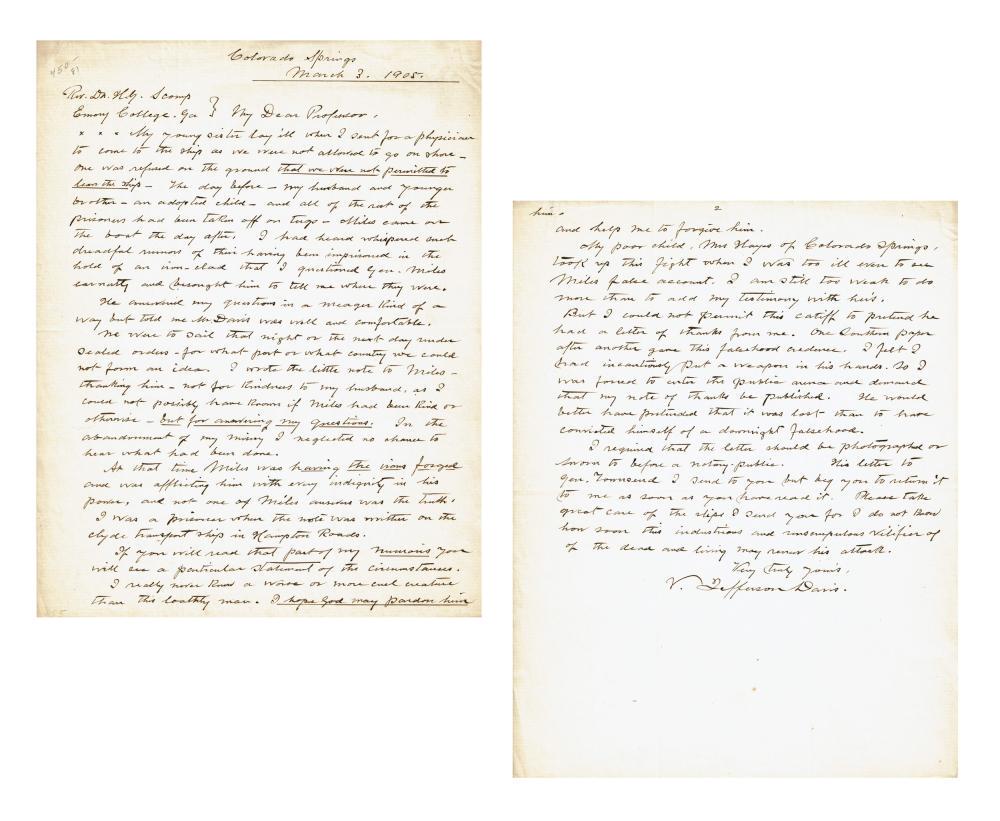 450-
91
Colorado Springs
March 3. 1905.
Rev. Dr. H.G. Scomp
Emory College. Ga } My Dear Professor,
× × × My young sister lay ill when I sent for a physician
to come to the ship as we were not allowed to go on shore –
one was refused on the ground that we were not permitted to
leave the ship – The day before – my husband and younger
brother – an adopted child – and all of the rest of the
prisoners had been taken off on tugs – Miles came on
the boat the day after. I had heard whispered such
dreadful rumors of their having been imprisoned in the
hold of an iron-clad that I questioned Gen. Miles
earnestly and besought him to tell me where they were.
He answered my questions in a meager kind of a
way but told me Mr. Davis was well and comfortable.
We were to sail that night or the next day under
sealed orders – for what port or what country we could
not form an idea. I wrote the little note to Miles –
thanking him – not for kindness to my husband, as I
could not posibly have known if Miles had been kind or
otherwise – but for answering my questions. In the
abandonment of my misery I neglected no chance to
hear what had been done.
At that time Miles was having the irons forged
and was afflicting him with every indignity in his
power, and not one of Miles answers was the truth.
I was a prisoner when the note was written on the
Clyde transport ship in Hampton Roads.
If you will read that part of my memoris you
will see a particular statement of the circumstances.
I really never knew a worse or more cruel creature
than this loathly man. I hope God may pardon him
2
him.
and help me to forgive him.
My poor child, Mrs Hayes of Colorado Springs,
took up this fight when I was too ill even to see
Miles false account. I am still too weak to do
more than to add my testimony with her's.
But I could not permit this catiff to pretend he
had a letter of thanks from me. One Southern paper
after another gave this falsehood credence. I felt I
had incautiously put a weapon in his hands. So I
was forced to enter the public arena and demand
that my note of thanks be published. He would
better have pretended that it was lost than to have
convicted himself of a downright falsehood.
I required that the letter should be photographed or
sworn to before a notary-public. His letter to
Gen. Townsend I send to you but beg you to return it
to me as soon as you have read it. Please take
great care of the slips I send you for I do not know
how soon this industrious and unscrupulous vilifier of
of the dead and living may renew his attack.
Very truly yours,
V. Jefferson Davis.